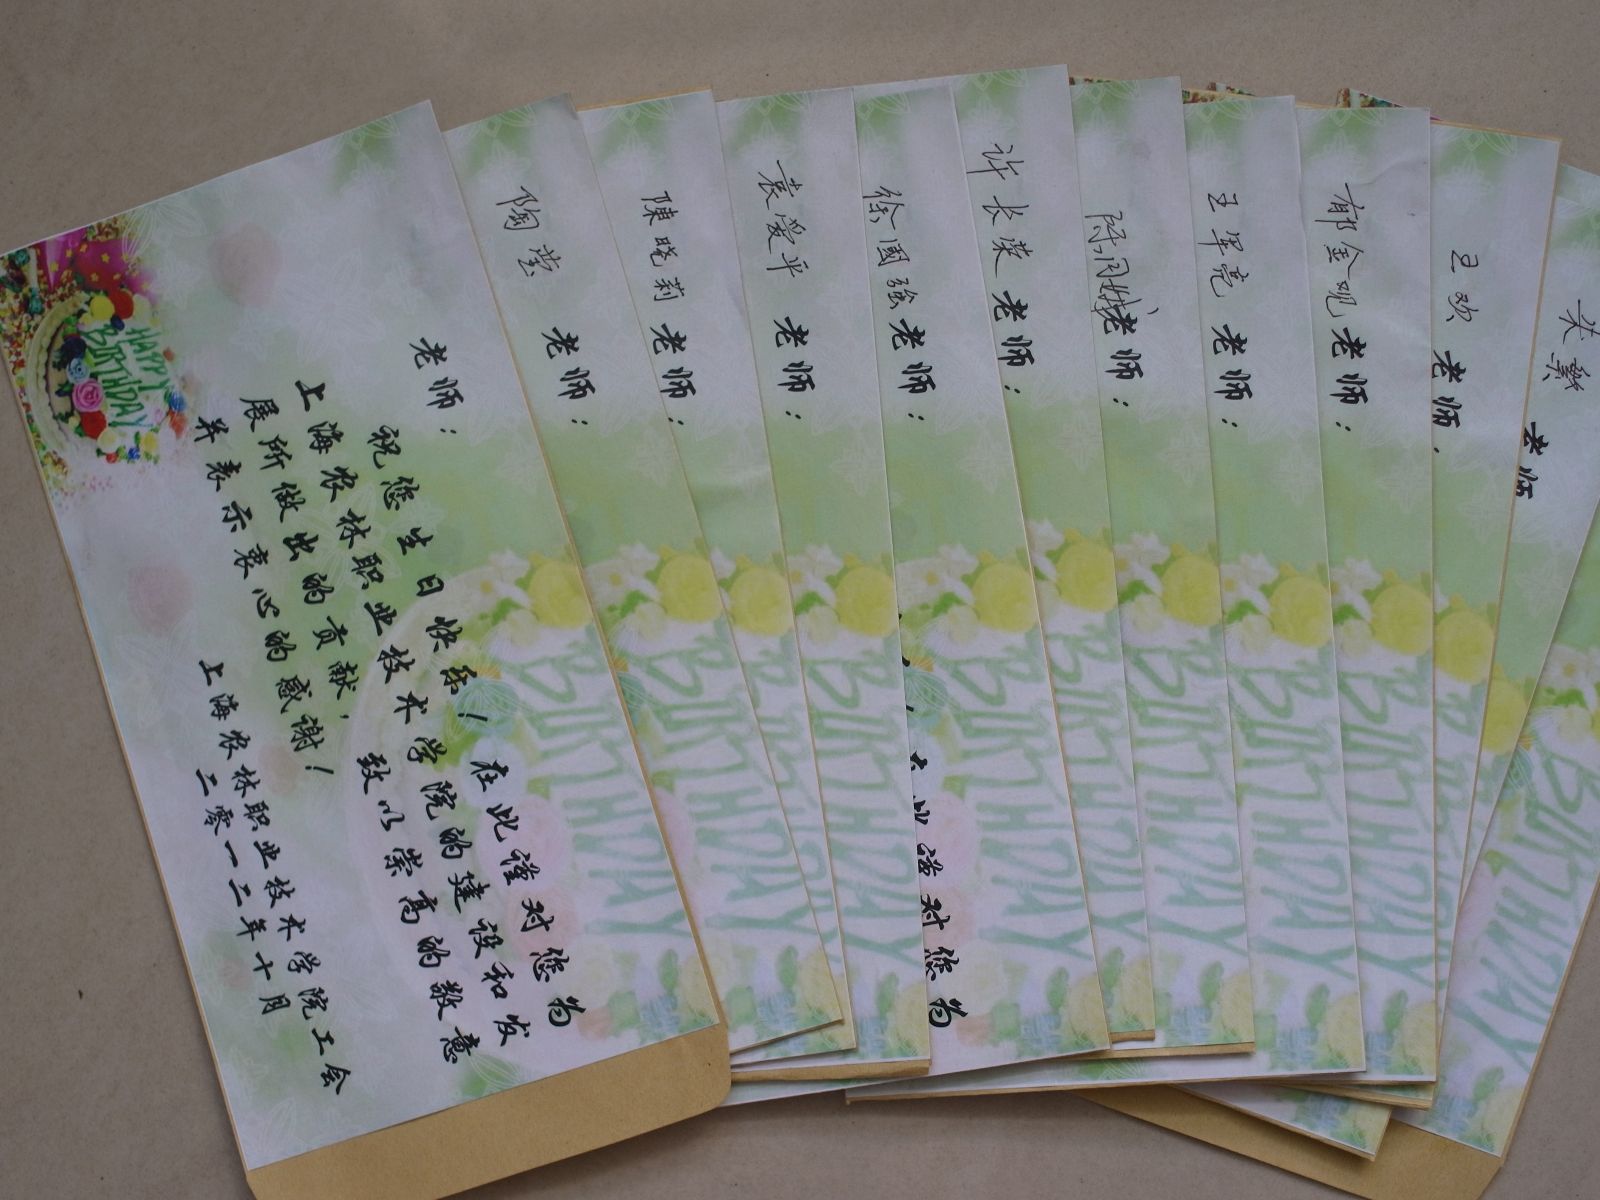 HAPPY
BIRTHDAY
老师：
祝您生日快乐！在此谨对您为
上海农林职业技术学院的建设和发
展所做出的贡献，致以崇高的敬意
并表示衷心的感谢！
上海农林职业技术学院工会
二零一二年十月
陶莹 老师：
陳晓莉 老师：
袁爱平 老师：
徐國强 老师：
许长荣 老师：
在此谨对您为
陈润娥 老师：
王军亮 老师：
郁金观 老师：
王欢 老师：
老师
BIRTHDAY
BIRTHDAY
BIRTHDAY
BIRTHDAY
BIRTHDAY
BIRTHDAY
BIRTHDAY